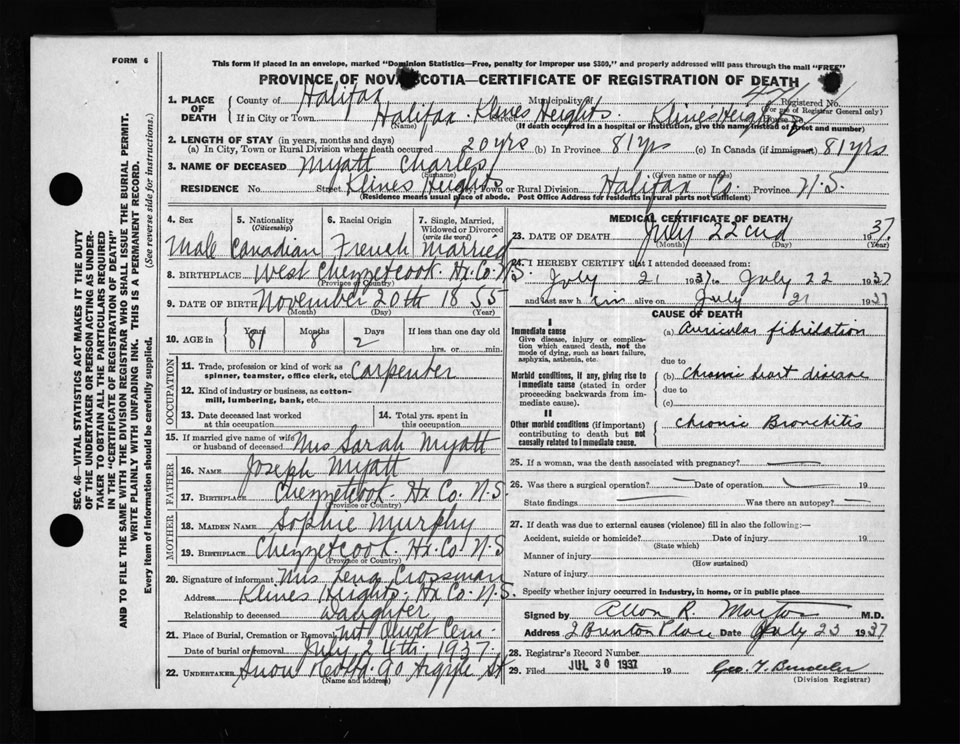 FORM 6
This form if placed in an envelope, marked "Dominion Statistics—Free, penalty for improper use $300," and properly addressed will pass through the mail "FREE"
PROVINCE OF NOVA SCOTIA—CERTIFICATE OF REGISTRATION OF DEATH
Registered No.
(For use of Registrar General only)
1. PLACE OF DEATH
County of Halifax Municipality of
If in City or Town Halifax. Klines Heights. Klines Heights
(Name) (If death occurred in a hospital or institution, give the name instead of street and number)
2. LENGTH OF STAY (in years, months and days)
(a) In City, Town or Rural Division where death occurred 20 yrs (b) In Province 81 yrs (c) In Canada (if immigrant) 81 yrs
3. NAME OF DECEASED Myatt Charles
(Surname) (Given name or names)
RESIDENCE No. Street Klines Heights City, Town or Rural Division Halifax Co. Province N.S.
(Residence means usual place of abode. Post Office Address for residents in rural parts not sufficient)
4. Sex Male
5. Nationality (Citizenship) Canadian
6. Racial Origin French
7. Single, Married, Widowed or Divorced (write the word) Married
8. BIRTHPLACE West Chezzetcook. Hx. Co. N.S.
(Province or Country)
9. DATE OF BIRTH November 20th 1855
(Month) (Day) (Year)
10. AGE in Years 81 Months 8 Days 2 If less than one day old
hrs. or min.
OCCUPATION
11. Trade, profession or kind of work as spinner, teamster, office clerk, etc. Carpenter
12. Kind of industry or business, as cotton-mill, lumbering, bank, etc.
13. Date deceased last worked at this occupation
14. Total yrs. spent in this occupation
15. If married give name of wife or husband of deceased Mrs Sarah Myatt
FATHER
16. NAME Joseph Myatt
17. BIRTHPLACE Chezzetcook. Hx Co. N.S.
(Province or Country)
MOTHER
18. MAIDEN NAME Sophie Murphy
19. BIRTHPLACE Chezzetcook. Hx. Co. N.S
(Province or Country)
20. Signature of informant Mrs Lena Crossman
Address Klines Heights, Hx Co. N.S.
Relationship to deceased Daughter
21. Place of Burial, Cremation or Removal Mt Olivet Cem.
Date of burial or removal July 24th. 1937.
22. UNDERTAKER Snow & Co Ltd. 90 Argyle St
(Name and address)
MEDICAL CERTIFICATE OF DEATH
23. DATE OF DEATH July 22nd 1937.
(Month) (Day) (Year)
24. I HEREBY CERTIFY that I attended deceased from:
July 21 1937 to July 22 1937
and last saw him alive on July 21 1937
CAUSE OF DEATH
I
Immediate cause
Give disease, injury or complication which caused death, not the mode of dying, such as heart failure, asphyxia, asthenia, etc.
(a) Auricular fibrilation
due to
Morbid conditions, if any, giving rise to immediate cause (stated in order proceeding backwards from immediate cause).
(b) Chronic heart disease
due to
(c)
II
Other morbid conditions (if important) contributing to death but not causally related to immediate cause.
Chronic Bronchitis
25. If a woman, was the death associated with pregnancy?
26. Was there a surgical operation? Date of operation 19
State findings Was there an autopsy?
27. If death was due to external causes (violence) fill in also the following:—
Accident, suicide or homicide? Date of injury 19
(State which)
Manner of injury
(How sustained)
Nature of injury
Specify whether injury occurred in industry, in home, or in public place
Signed by Allan R. Morton M.D.
Address 2 Brenton Place Date July 23 1937
28. Registrar's Record Number
29. Filed JUL 30 1937 19
(Division Registrar)
SEC. 46—VITAL STATISTICS ACT MAKES IT THE DUTY
OF THE UNDERTAKER OR PERSON ACTING AS UNDER-
TAKER TO OBTAIN ALL THE PARTICULARS REQUIRED
IN THE "CERTIFICATE OF REGISTRATION OF DEATH"
AND TO FILE THE SAME WITH THE DIVISION REGISTRAR WHO SHALL ISSUE THE BURIAL PERMIT.
WRITE PLAINLY WITH UNFADING INK. THIS IS A PERMANENT RECORD.
Every item of Information should be carefully supplied. (See reverse side for instructions.)